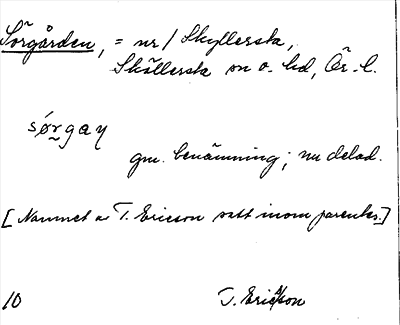 Sörgården, = nr 1 Skyllersta,
Skyllersta sn o. hd, Ör. l.
sǿrgaɳ
gm. benämning; nu delad.
[Namnet av T. Ericson satt inom parentes.]
10 T. Ericsson